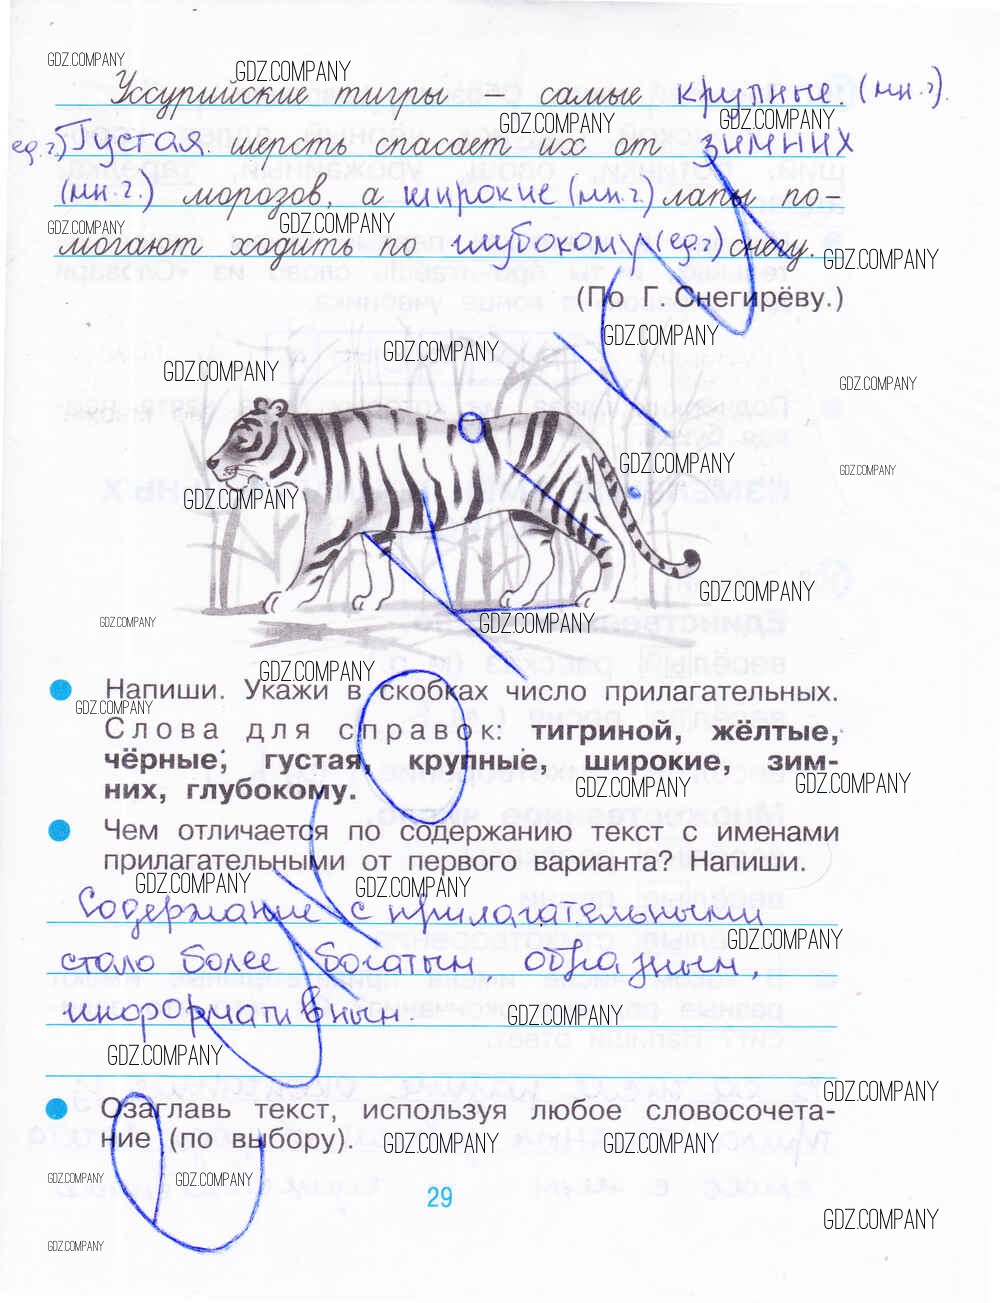 GDZ.COMPANY
GDZ.COMPANY
Уссурийские тигры – самые крупные. (мн.ч).
GDZ.COMPANY
GDZ.COMPANY
ед.ч.) Густая. шерсть спасает их от зимних
(мн.ч.) морозов, а широкие (мн.ч.) лапы по-
GDZ.COMPANY
GDZ.COMPANY
могают ходить по глубокому (ед.ч) снегу.
GDZ.COMPANY
(По Г. Снегирёву.)
GDZ.COMPANY
GDZ.COMPANY
GDZ.COMPANY
GDZ.COMPANY
GDZ.COMPANY
GDZ.COMPANY
GDZ.COMPANY
GDZ.COMPANY
GDZ.COMPANY
GDZ.COMPANY
GDZ.COMPANY
Напиши. Укажи в скобках число прилагательных.
GDZ.COMPANY
Слова для справок: тигриной, жёлтые,
чёрные, густая, крупные, широкие, зим-
них, глубокому.
GDZ.COMPANY
GDZ.COMPANY
Чем отличается по содержанию текст с именами
прилагательными от первого варианта? Напиши.
GDZ.COMPANY
GDZ.COMPANY
Содержание с прилагательными
GDZ.COMPANY
стало более богатым, образным,
информативным.
GDZ.COMPANY
GDZ.COMPANY
GDZ.COMPANY
Озаглавь текст, используя любое словосочета-
ние (по выбору).
GDZ.COMPANY
GDZ.COMPANY
GDZ.COMPANY
GDZ.COMPANY
29
GDZ.COMPANY
GDZ.COMPANY